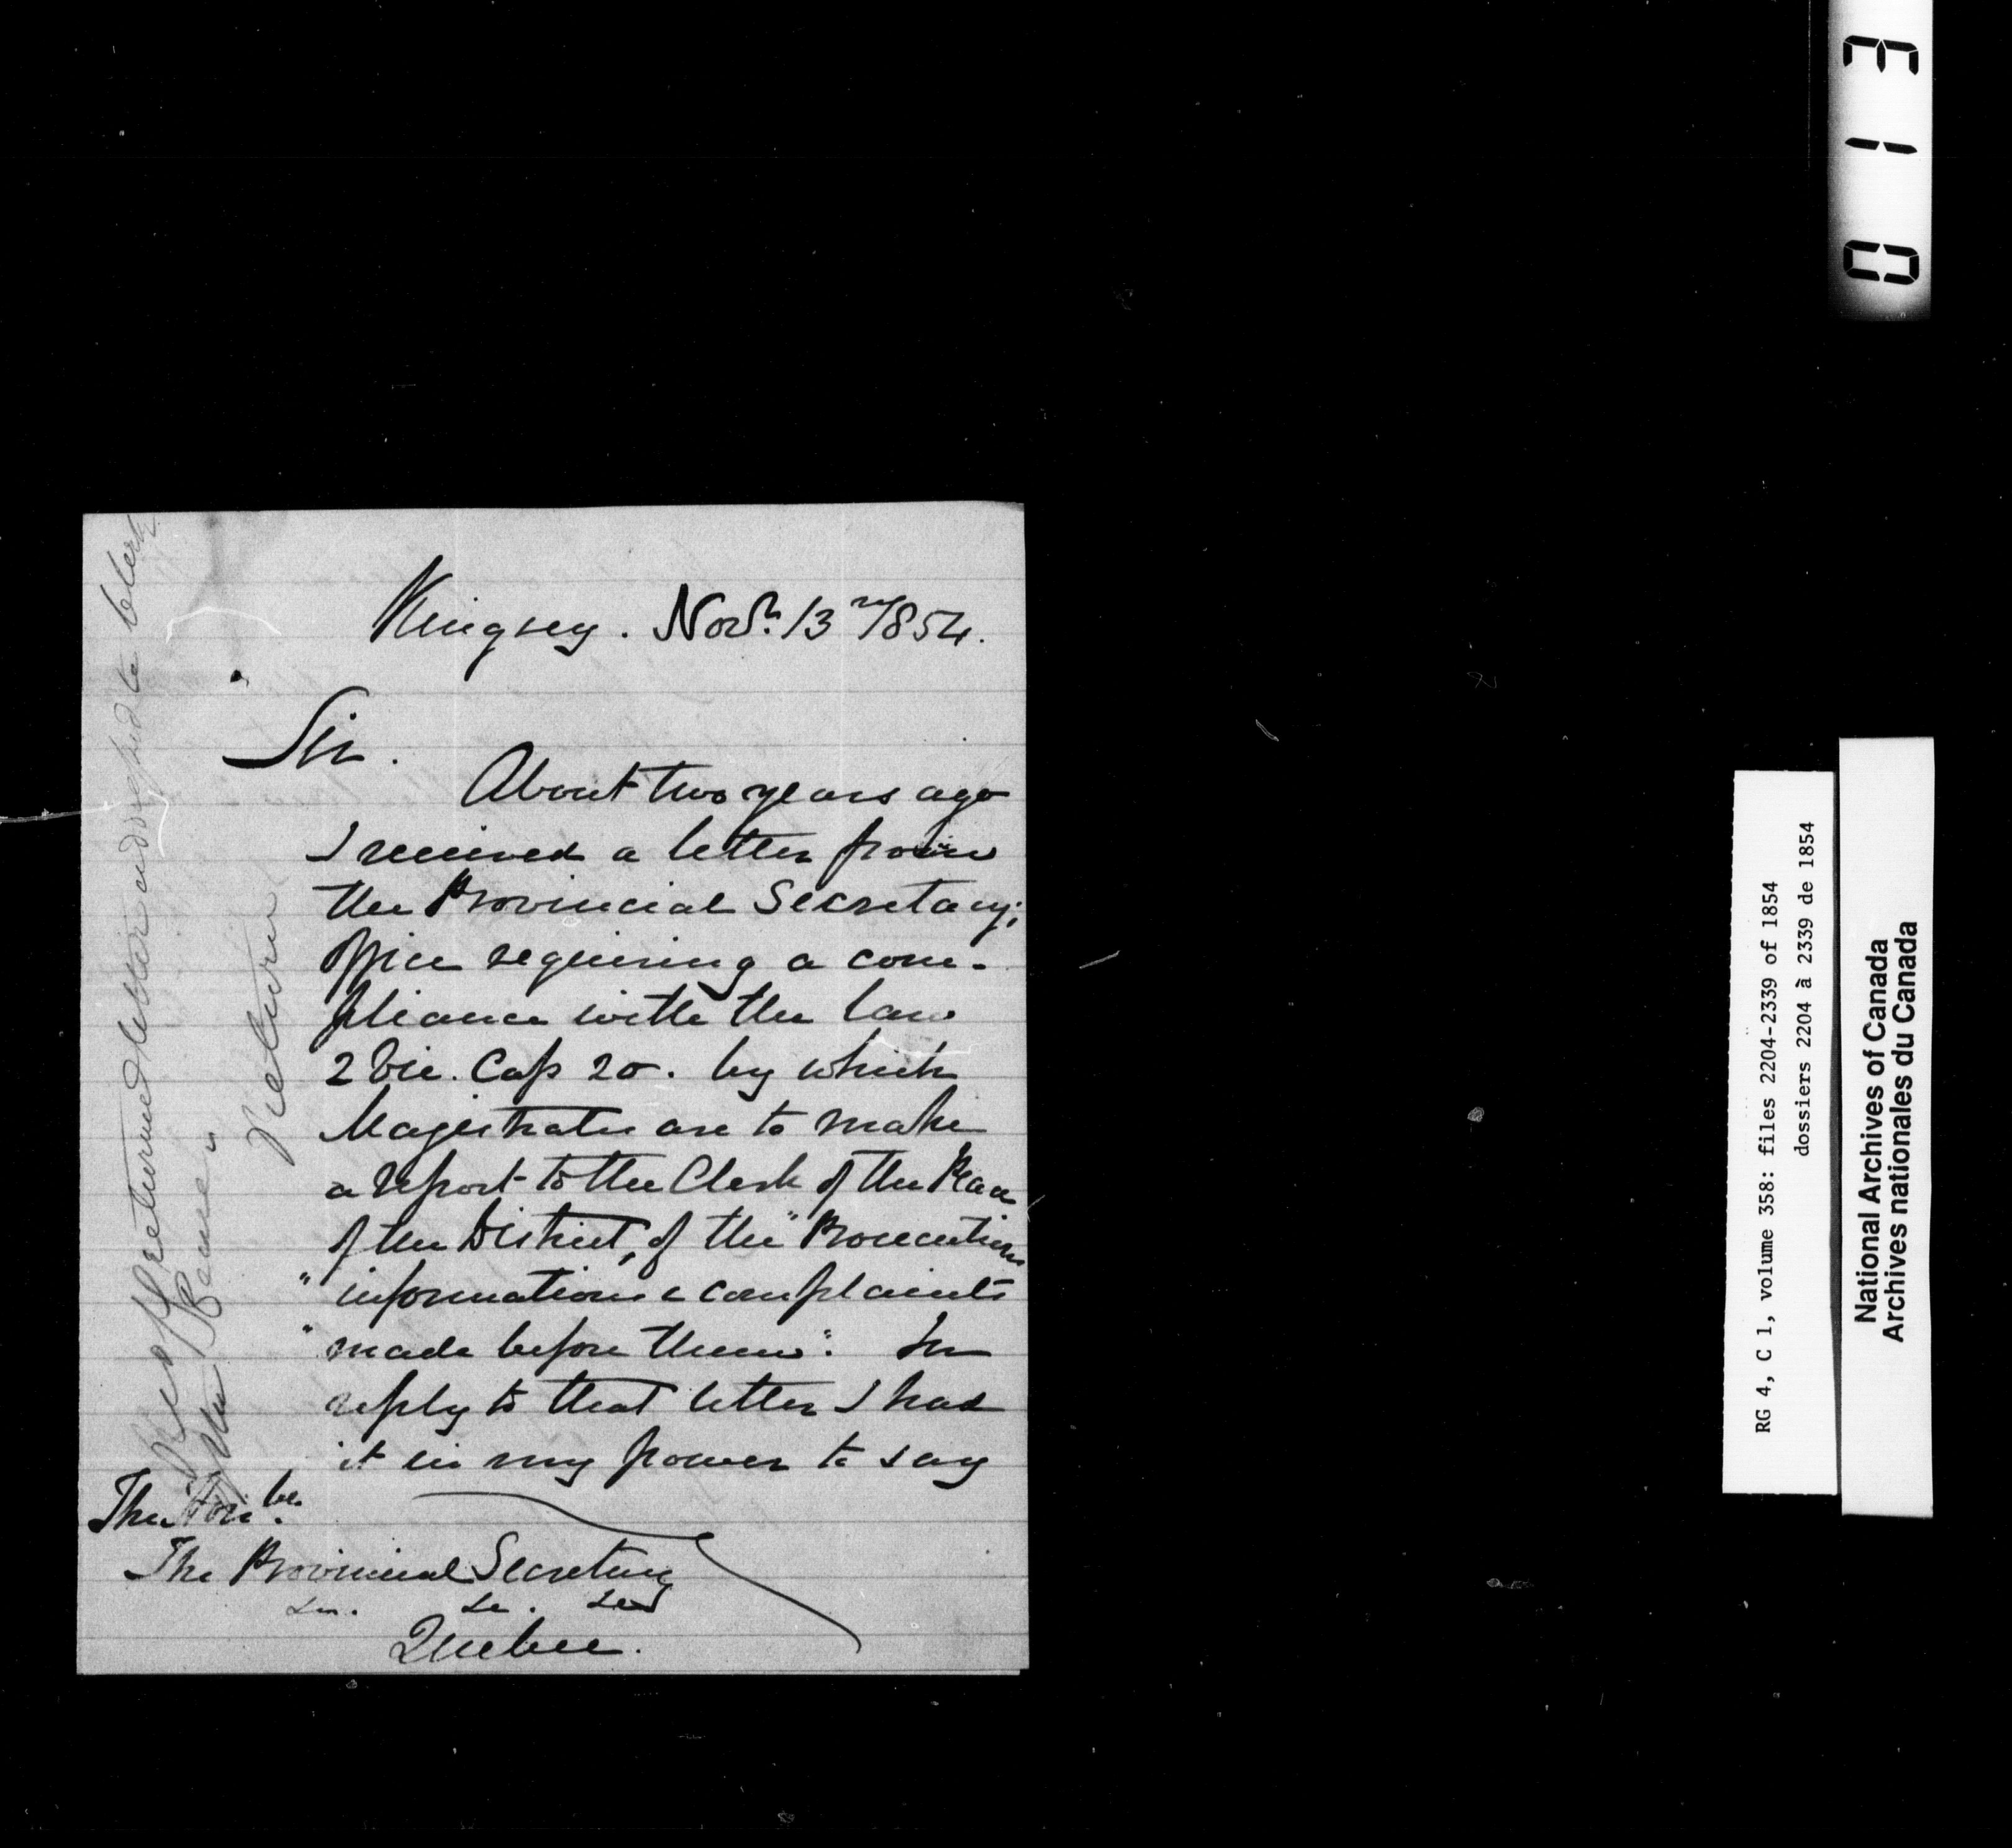 Kingsey. Novr. 13 1854.
Sir.
About two years ago
I received a letter from
the Provincial Secretary's
office requiring a com-
pliance with the law
2 Vic. Cap 20. by which
Magistrates are to make
a report to the Clerk of the Peace
of the District, of the "Prosecutions
" informations & complaints
" made before them". In
reply to that letter I had
it in my power to say
The Honble.
The Provincial Secretary
&c. &c. &c
Quebec.
returned letter addressed to Clerk
Return
013
RG 4, C 1, volume 358: files 2204-2339 of 1854
dossiers 2204 à 2339 de 1854
National Archives of Canada
Archives nationales du Canada